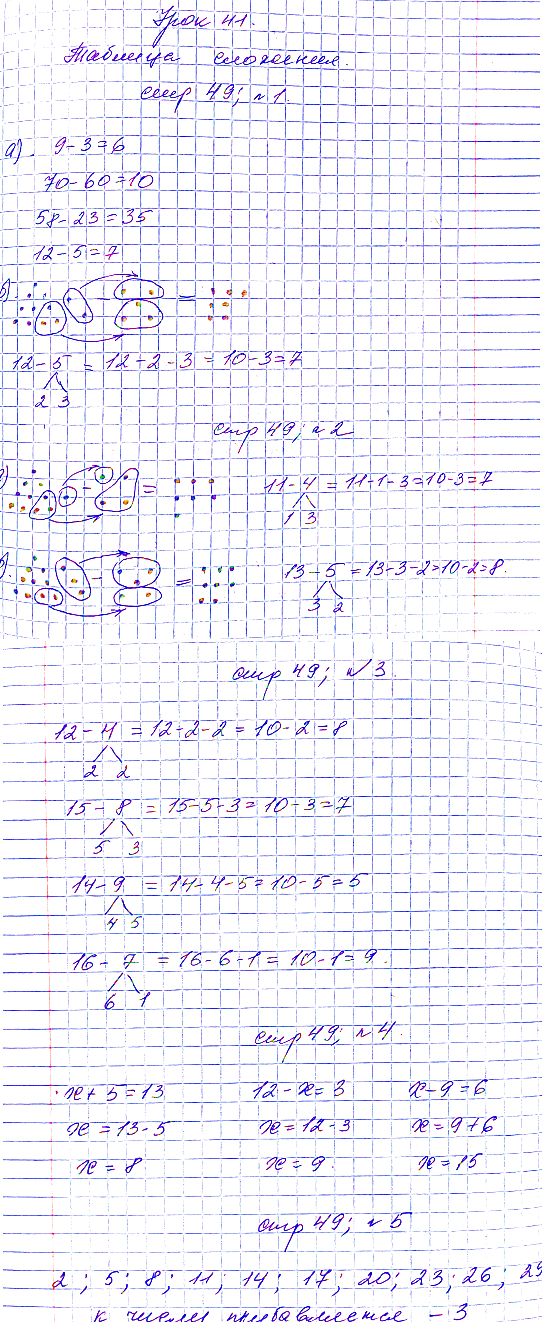 Урок 41.
Таблица сложения.
стр 49; №1.
а) 9-3=6
70-60=10
58-23=35
12-5=7
б)
12-5 = 12-2-3 = 10-3=7
2 3
стр 49; №2
11-4 = 11-1-3=10-3=7
1 3
13-5 = 13-3-2=10-2=8.
3 2
стр 49; №3
12-4 = 12-2-2 = 10-2=8
2 2
15-8 = 15-5-3=10-3=7
5 3
14-9 = 14-4-5=10-5=5
4 5
16-7 = 16-6-1=10-1=9.
6 1
стр 49; №4.
x+5=13 12-x=3 x-9=6
x=13-5 x=12-3 x=9+6
x=8 x=9. x=15
стр 49; №5
2; 5; 8; 11; 14; 17; 20; 23; 26; 29
к числу прибавляется - 3